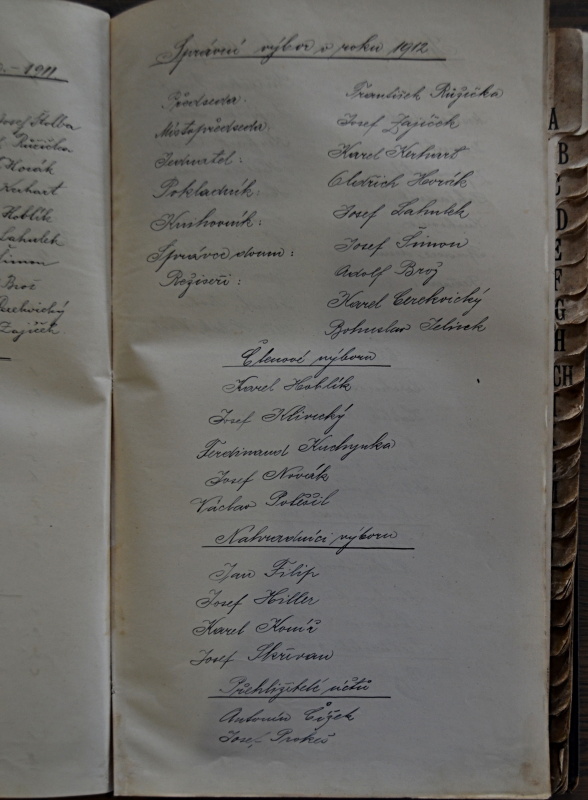 – 1911
Josef Štolba
Růžička
Horák
Kerhart
Hoblík
Lahulek
Šimon
Brož
Cerekvický
Zajíček
Správní výbor v roku 1912
Předseda: František Růžička
Místopředseda: Josef Zajíček
Jednatel: Karel Kerhart
Pokladník: Oldřich Horák
Knihovník: Josef Lahulek
Správce domu: Josef Šimon
Režiseři: Adolf Brož
Karel Cerekvický
Bohuslav Jelínek
Členové výboru
Karel Hoblík
Josef Klivický
Ferdinand Kuchynka
Josef Novák
Václav Potěšil
Náhradníci výboru
Jan Filip
Josef Hiller
Karel Komíž
Josef Skřivan
Přehlížitelé účtů
Antonín Čížek
Josef Prokeš
A
B
C
D
E
F
G
H
CH
I